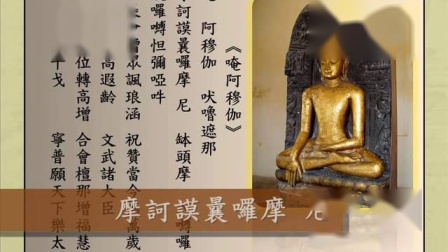 《唵阿穆伽》
阿穆伽 吠嚕遮那
摩訶謨曩囉摩 尼 鉢頭摩 囉
囉嚩怛彌啞吽
諷琅涵 祝贊當今 萬歲
高遐齡 文武諸大臣
位轉高增 合會檀那增福慧
干戈 寧普願天下樂太
摩訶謨曩囉摩 尼